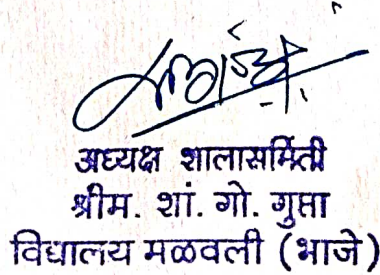 अध्यक्ष शालासमिती
श्रीम. शां. गो. गुप्ता
विद्यालय मळवली (भाजे)